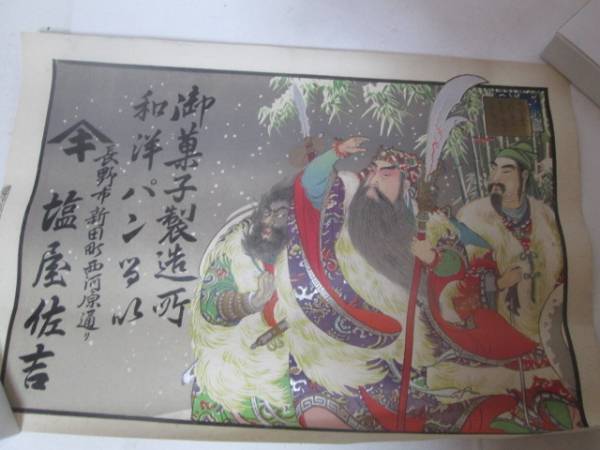 御菓子製造所
和洋パン品以
長野市新田町西河原通リ
キ
塩屋佐吉